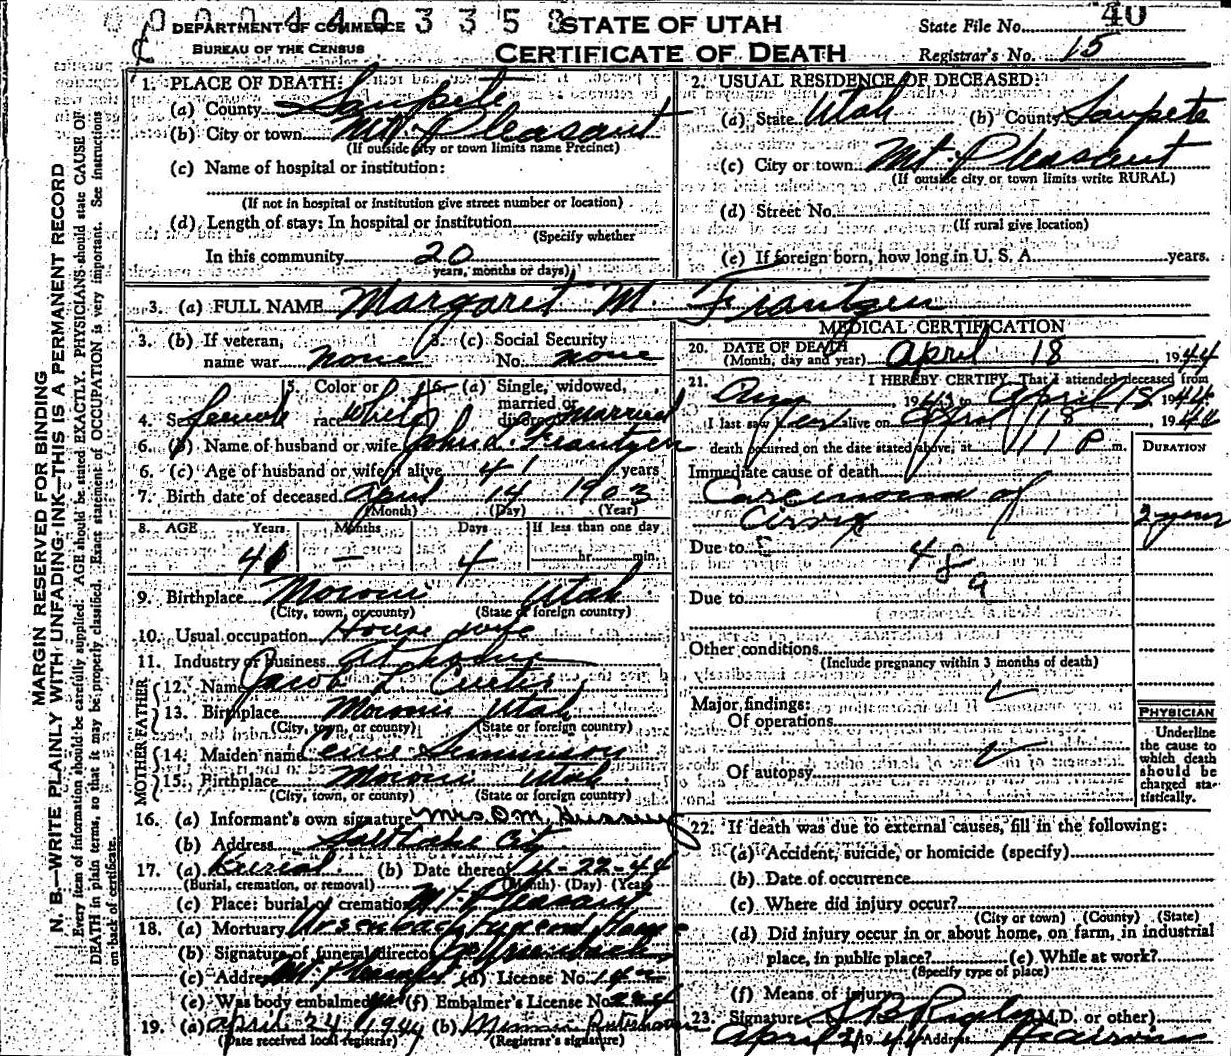 0004403358
DEPARTMENT OF COMMERCE
BUREAU OF THE CENSUS
STATE OF UTAH
CERTIFICATE OF DEATH
State File No. 40
Registrar's No. 15
MARGIN RESERVED FOR BINDING
N. B.—WRITE PLAINLY WITH UNFADING INK—THIS IS A PERMANENT RECORD
Every item of information should be carefully supplied. AGE should be stated EXACTLY. PHYSICIANS should state CAUSE OF
DEATH in plain terms, so that it may be properly classified. Exact statement of OCCUPATION is very important. See instructions
on back of certificate.
1. PLACE OF DEATH:
(a) County Sanpete
(b) City or town Mt. Pleasant
(If outside city or town limits name Precinct)
(c) Name of hospital or institution:
(If not in hospital or institution give street number or location)
(d) Length of stay: In hospital or institution
(Specify whether
In this community 20
years, months or days)
2. USUAL RESIDENCE OF DECEASED
(a) State Utah (b) County Sanpete
(c) City or town Mt. Pleasant
(If outside city or town limits write RURAL)
(d) Street No.
(If rural give location)
(e) If foreign born, how long in U. S. A. years.
3. (a) FULL NAME Margaret M. Frantzen
3. (b) If veteran, name war none
3. (c) Social Security No. none
4. Sex Female
5. Color or race White
6. (a) Single, widowed, married or divorced married
6. (b) Name of husband or wife John L. Frantzen
6. (c) Age of husband or wife if alive 41 years
7. Birth date of deceased April 14 1903
(Month) (Day) (Year)
8. AGE Years Months Days If less than one day
41 — 4 hr. min.
9. Birthplace Moroni Utah
(City, town, or county) (State or foreign country)
10. Usual occupation House wife
11. Industry or business At home
FATHER
12. Name Jacob L. Curtis
13. Birthplace Moroni Utah
(City, town, or county) (State or foreign country)
MOTHER
14. Maiden name
15. Birthplace Moroni Utah
(City, town, or county) (State or foreign country)
16. (a) Informant's own signature Mrs. O. M.
(b) Address Salt Lake City
17. (a) Burial (b) Date thereof 4-22-44
(Burial, cremation, or removal) (Month) (Day) (Year)
(c) Place: burial or cremation Mt. Pleasant
18. (a) Mortuary Ursenbach Funeral Home
(b) Signature of funeral director Ursenbach
(c) Address Mt. Pleasant (d) License No.
(e) Was body embalmed yes (f) Embalmer's License No.
19. (a) April 24 1944 (b)
(Date received local registrar) (Registrar's signature)
MEDICAL CERTIFICATION
20. DATE OF DEATH
(Month, day and year) April 18, 1944
21. I HEREBY CERTIFY, That I attended deceased from
Aug 1943 to April 18 1944
I last saw her alive on April 18 1944
death occurred on the date stated above, at 11 P m.
DURATION
Immediate cause of death
Carcinoma of
Cervix 2 years
Due to
48a
Due to
Other conditions
(Include pregnancy within 3 months of death)
Major findings:
Of operations
Of autopsy
PHYSICIAN
Underline
the cause to
which death
should be
charged sta-
tistically.
22. If death was due to external causes, fill in the following:
(a) Accident, suicide, or homicide (specify)
(b) Date of occurrence
(c) Where did injury occur?
(City or town) (County) (State)
(d) Did injury occur in or about home, on farm, in industrial
place, in public place? (e) While at work?
(Specify type of place)
(f) Means of injury
23. Signature (M.D. or other)
April 21 1944 Address